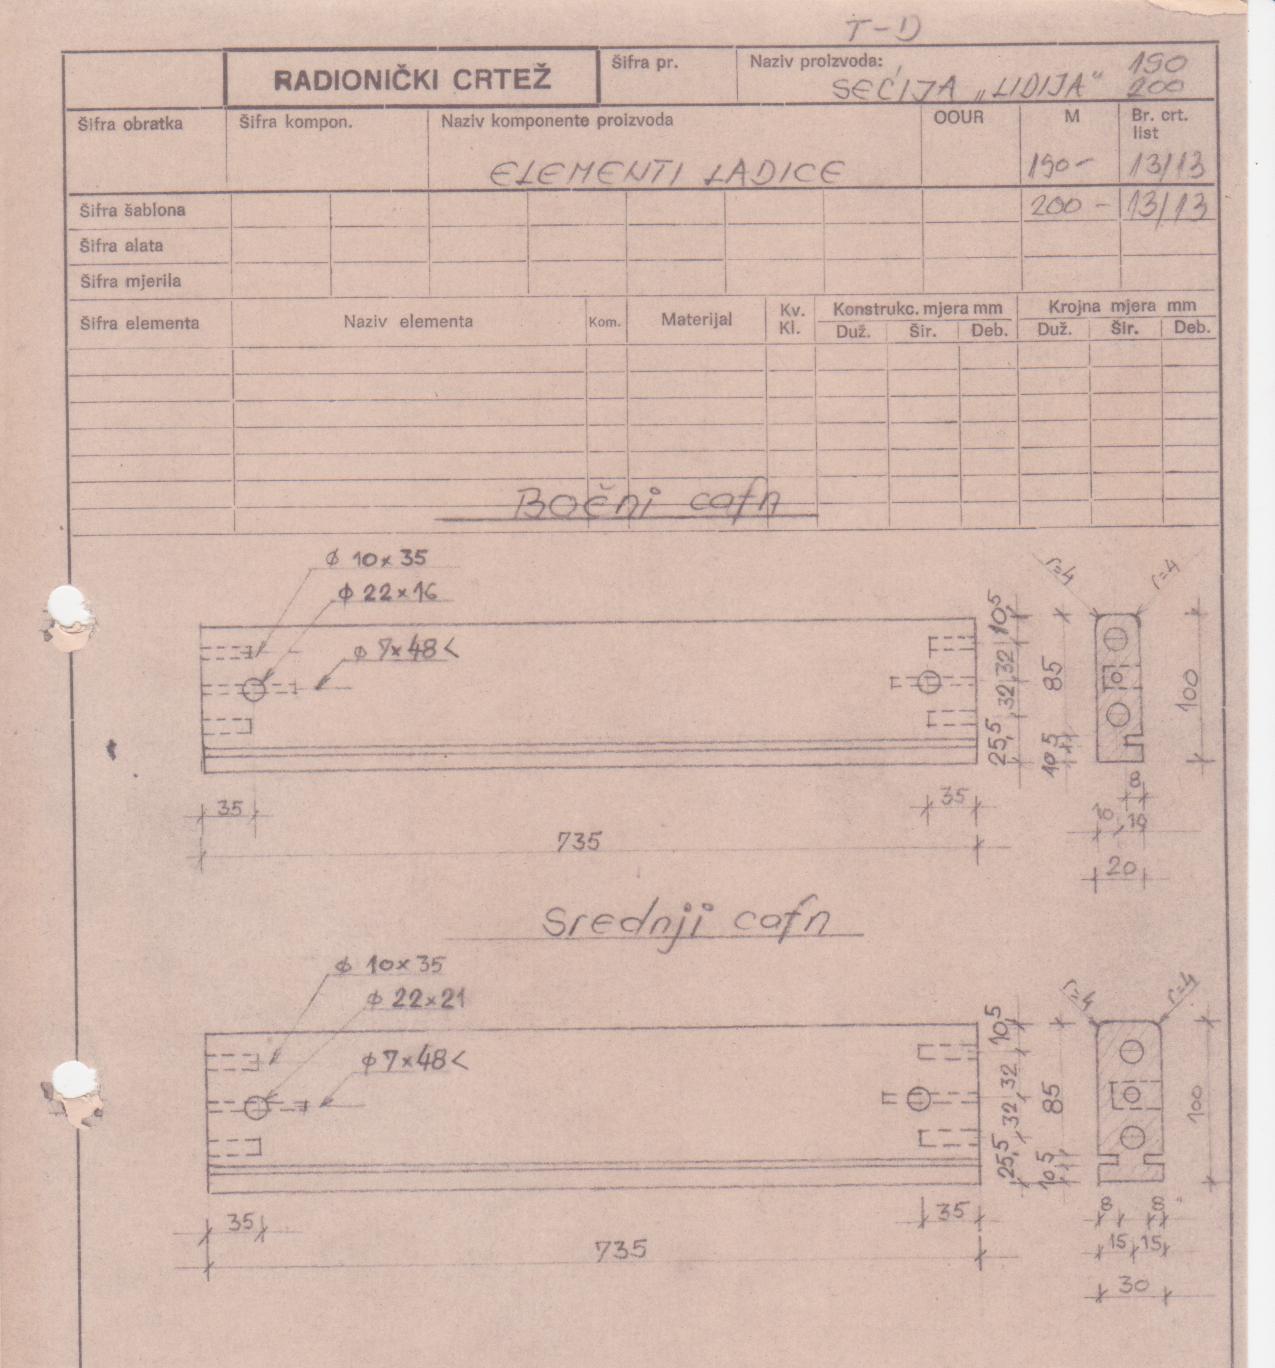 T-D
RADIONIČKI CRTEŽ
Šifra pr.
Naziv proizvoda:
SEĆIJA „LIDIJA“
190
200
Šifra obratka
Šifra kompon.
Naziv komponente proizvoda
ELEMENTI LADICE
OOUR
M
Br. crt.
list
190- 13/13
200 - 13/13
Šifra šablona
Šifra alata
Šifra mjerila
Šifra elementa
Naziv elementa
Kom.
Materijal
Kv.
Kl.
Konstrukc. mjera mm
Duž. Šir. Deb.
Krojna mjera mm
Duž. Šir. Deb.
Bočni cafn
ϕ 10x35
ϕ 22x16
ϕ 7x48<
10,5
32
32
25,5
85
10,5
r=4
r=4
100
8
10 10
20
35
35
735
Srednji cafn
ϕ 10x35
ϕ 22x21
ϕ 7x48<
10,5
32
32
25,5
85
10,5
r=4
r=4
100
8 8
15 15
30
35
35
735